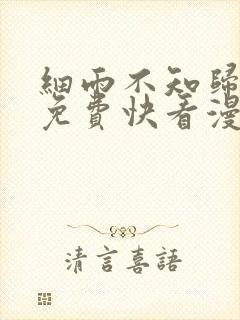 細雨不知歸
免費快看漫
清言喜語